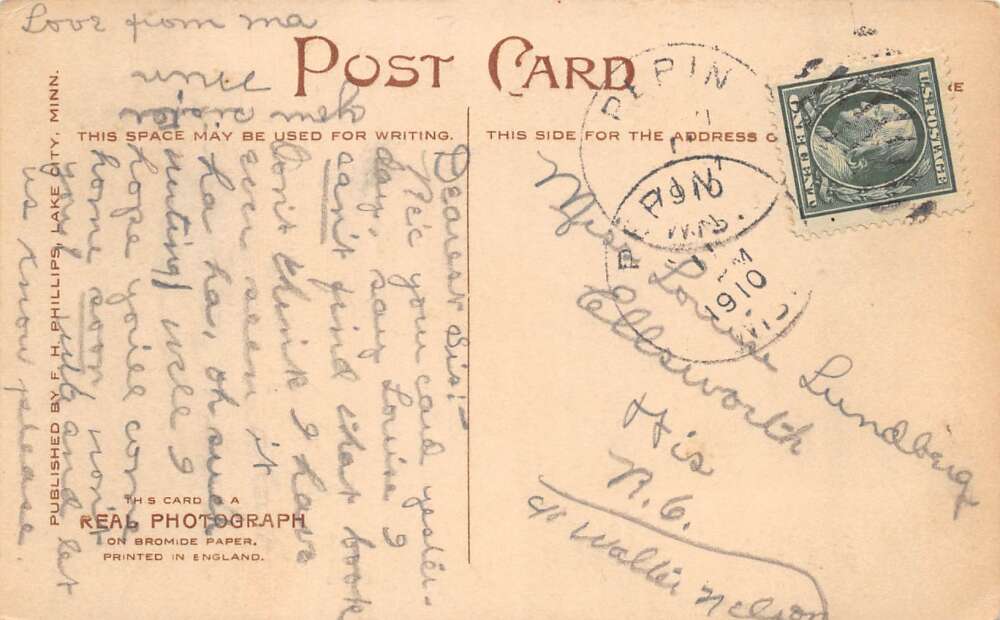 Love from ma
POST CARD
THIS SPACE MAY BE USED FOR WRITING.
THIS SIDE FOR THE ADDRESS O
E
PUBLISHED BY F. H. PHILLIPS, LAKE CITY, MINN.
Dearest Sis:—
Rec'c your card yester-
day, say Louise I
can't find that book
Don't think I have
ever seen it
ha ha, oh such
writing! well I
hope you'll come
home soon won't
you, write and let
us know please.
your sister
THIS CARD IS A
REAL PHOTOGRAPH
ON BROMIDE PAPER.
PRINTED IN ENGLAND.
PEPIN
PEPIN
WIS.
1910
U.S. POSTAGE
ONE CENT
Miss Louise Lundberg
Ellsworth
Wis
R. 6.
c/o Walter Nelson